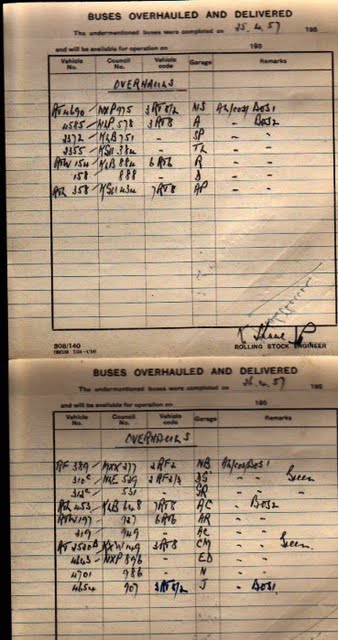 BUSES OVERHAULED AND DELIVERED
The undermentioned buses were completed on 25.4.57 195
and will be available for operation on 195
Vehicle No. Council No. Vehicle code Garage Remarks
OVERHAULS
RT 4690 NXP 975 3RT8/2 NS BOS1
4585 NLP 578 3RT8 A - - BOS2
2372 KLB 751 - SP - -
2355 KGU 384 - TL - -
RTW 154 KLB 884 6RT6 R - -
158 888 - D - -
RTL 358 KGU 434 7RT8 AP - -
ROLLING STOCK ENGINEER
808/140
BUSES OVERHAULED AND DELIVERED
The undermentioned buses were completed on 26.4.57 195
and will be available for operation on 195
Vehicle No. Council No. Vehicle code Garage Remarks
OVERHAULS
RF 389 MXX 277 2RF2 NB BOS1
310 NLE 529 2RF2/3 - - Green
312 531 - SR - -
RTL 453 KLB 648 7RT8 AC - BOS2
RTW 197 727 6RT6 AR - -
219 749 - AL - -
RT 2520 KXW 149 3RT8 CM - - Green
4643 NXP 896 - ED - -
4701 986 - N - -
4654 907 3RT8/2 J - BOS1